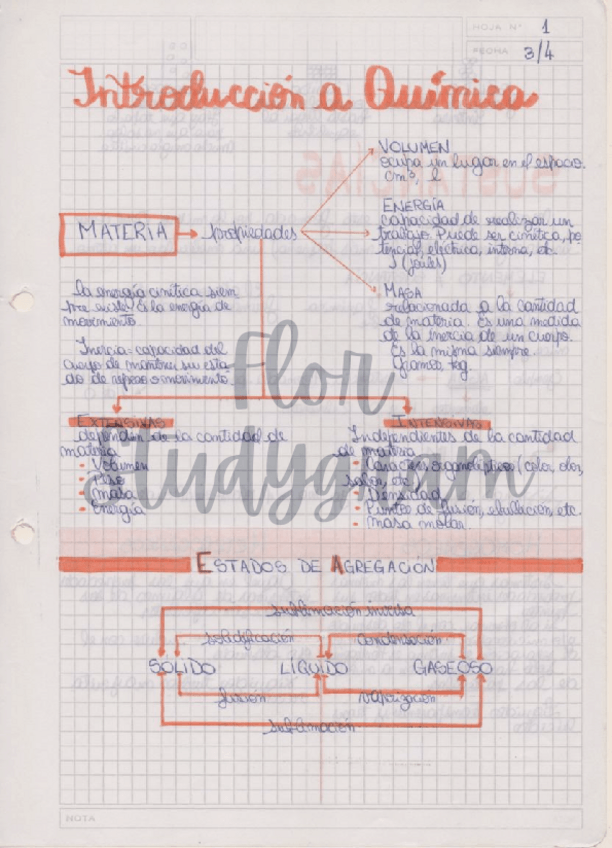 HOJA N° 1
FECHA 3/4
Introducción a Química
VOLUMEN
ocupa un lugar en el espacio.
cm³, l
ENERGÍA
capacidad de realizar un
trabajo. Puede ser cinética, po-
tencial, eléctrica, interna, etc.
J (joules)
MATERIA → propiedades
MASA
relacionada a la cantidad
de materia. Es una medida
de la inercia de un cuerpo.
Es la misma siempre.
la energía cinética siem
pre existe. Es la energía de
movimiento
Inercia = capacidad del
cuerpo de mantener su esta-
do de reposo o movimiento.
EXTENSIVAS
dependen de la cantidad de
materia
- Volumen
- Peso
- Masa
- Energía
INTENSIVAS
Independientes de la cantidad
de materia
- Caracteres organolépticos (color, olor,
sabor, etc.
- Densidad
- Puntos de fusión, ebullición, etc.
- Masa molar.
Flor
Studygram
ESTADOS DE AGREGACIÓN
sublimación inversa
solidificación condensación
SOLIDO LÍQUIDO GASEOSO
fusión vaporización
sublimación
NOTA